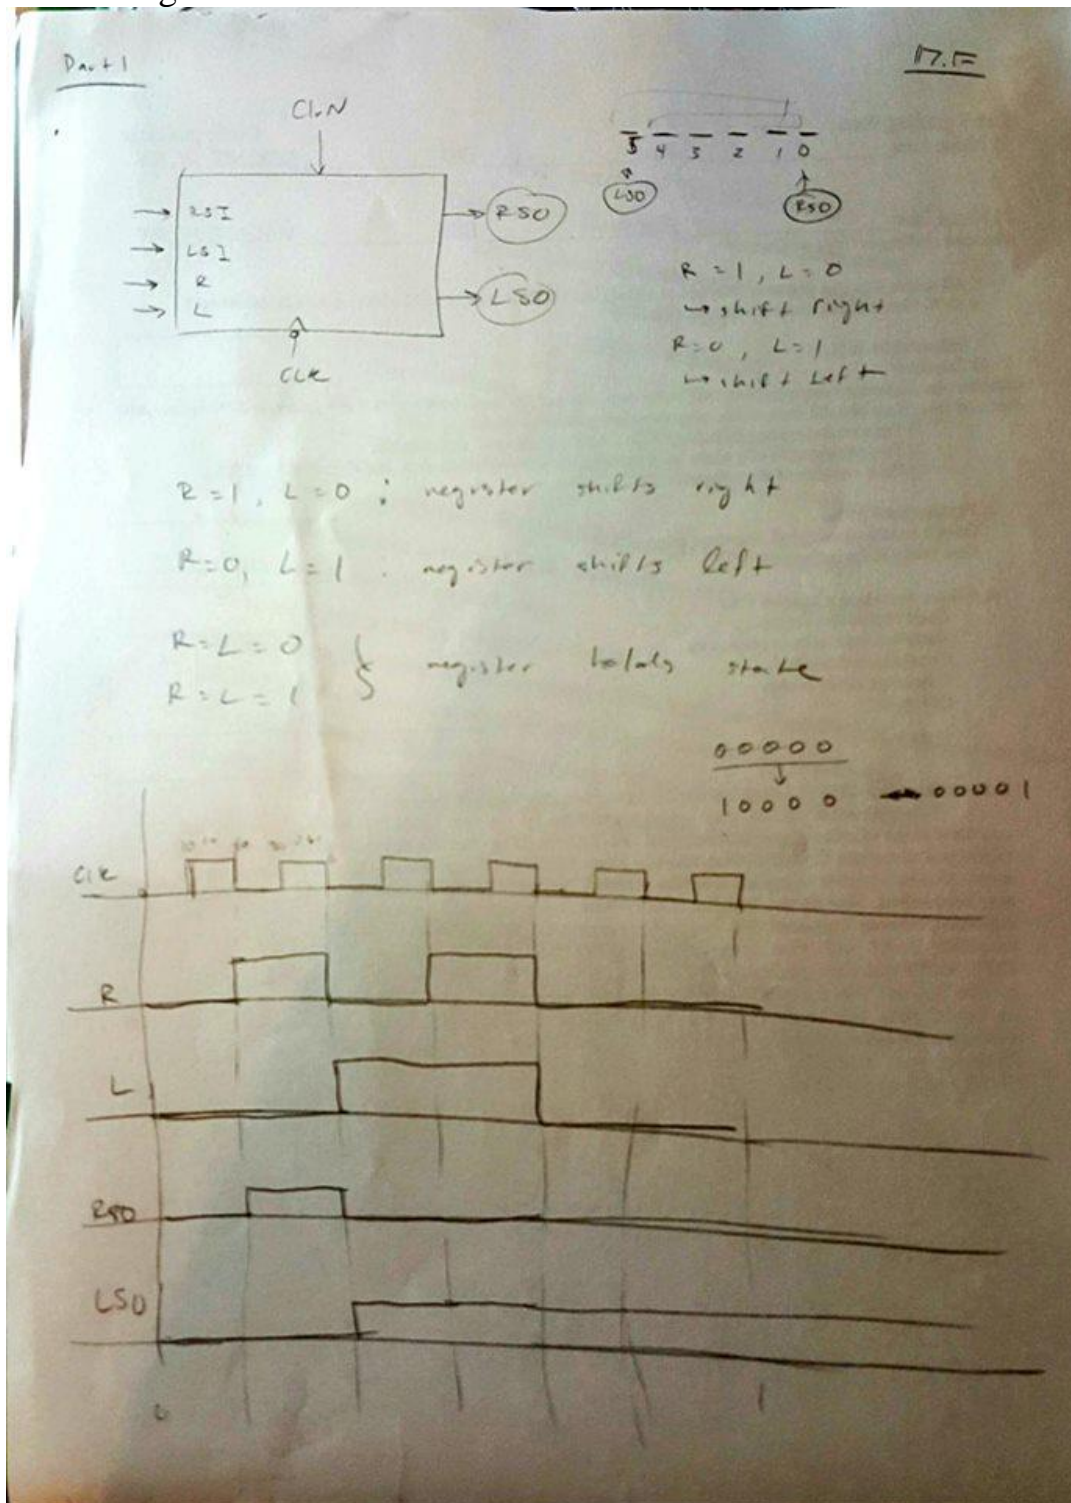 Part 1
M.F
ClrN
RSI
LSI
R
L
RSO
LSO
CLK
5 4 3 2 1 0
LSO
RSO
R = 1, L = 0
↳ shift right
R = 0, L = 1
↳ shift left
R = 1, L = 0 : register shifts right
R = 0, L = 1 : register shifts left
R = L = 0
R = L = 1
} register holds state
00000
↓
10000 ← 00001
Clk
R
L
RSO
LSO